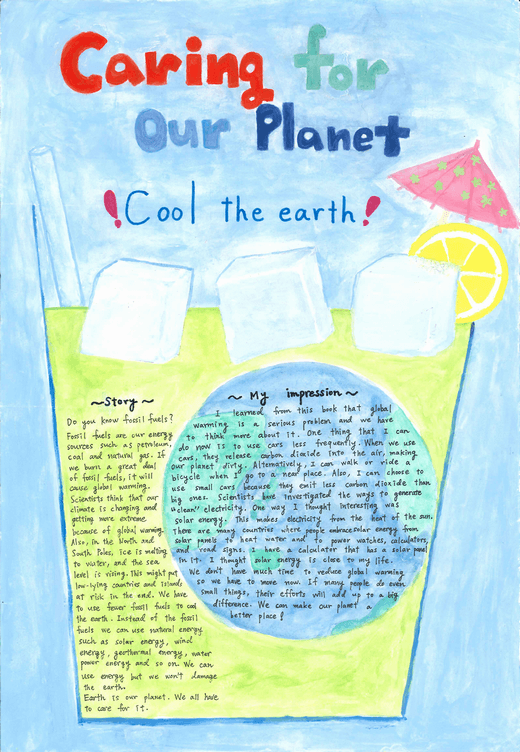 Caring for
Our Planet
!Cool the earth!
~Story~
Do you know fossil fuels?
Fossil fuels are our energy
sources such as petroleum,
coal and natural gas. If
we burn a great deal
of fossil fuels, it will
cause global warming.
Scientists think that our
climate is changing and
getting more extreme
because of global warming.
Also, in the North and
South Poles, ice is melting
to water, and the sea
level is rising. This might put
low-lying countries and islands
at risk in the end. We have
to use fewer fossil fuels to cool
the earth. Instead of the fossil
fuels we can use natural energy
such as solar energy, wind
energy, geothermal energy, water
power energy and so on. We can
use energy but we won't damage
the earth.
Earth is our planet. We all have
to care for it.
~ My impression ~
I learned from this book that global
warming is a serious problem and we have
to think more about it. One thing that I can
do now is to use cars less frequently. When we use
cars, they release carbon dioxide into the air, making
our planet dirty. Alternatively, I can walk or ride a
bicycle when I go to a near place. Also, I can choose to
use small cars because they emit less carbon dioxide than
big ones. Scientists have investigated the ways to generate
"clean" electricity. One way I thought interesting was
solar energy. This makes electricity from the heat of the sun.
There are many countries where people embrace solar energy from
solar panels to heat water and to power watches, calculators,
and road signs. I have a calculator that has a solar panel
in it. I thought solar energy is close to my life.
We don't have much time to reduce global warming
so we have to move now. If many people do even
small things, their efforts will add up to a big
difference. We can make our planet a
better place!